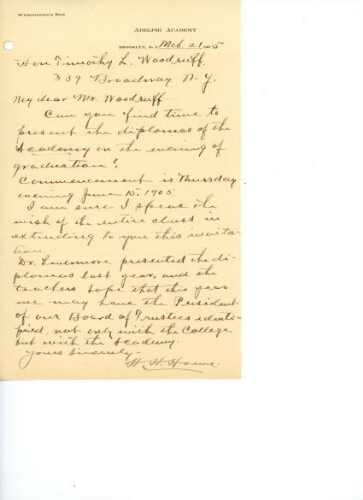 Adelphi Academy
Brooklyn, Mch. 21 1905
Hon Timothy L. Woodruff.
339 Broadway N. Y.
My dear Mr. Woodruff
Can you find time to
present the diplomas of the
Academy on the evening of
graduation?
Commencement is Thursday
evening June 15. 1905
I am sure I speak the
wish of the entire class in
extending to you this invita-
tion
Dr. Levermore presented the di-
plomas last year, and the
teachers hope that this year
we may have the President
of our Board of Trustees identi-
fied, not only with the College
but with the Academy.
Yours Sincerely-